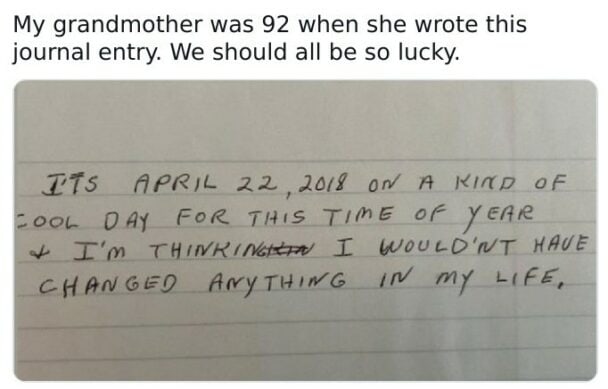 My grandmother was 92 when she wrote this
journal entry. We should all be so lucky.
IT'S APRIL 22, 2018 ON A KIND OF
COOL DAY FOR THIS TIME OF YEAR
& I'M THINKING I WOULD'NT HAVE
CHANGED ANYTHING IN MY LIFE.